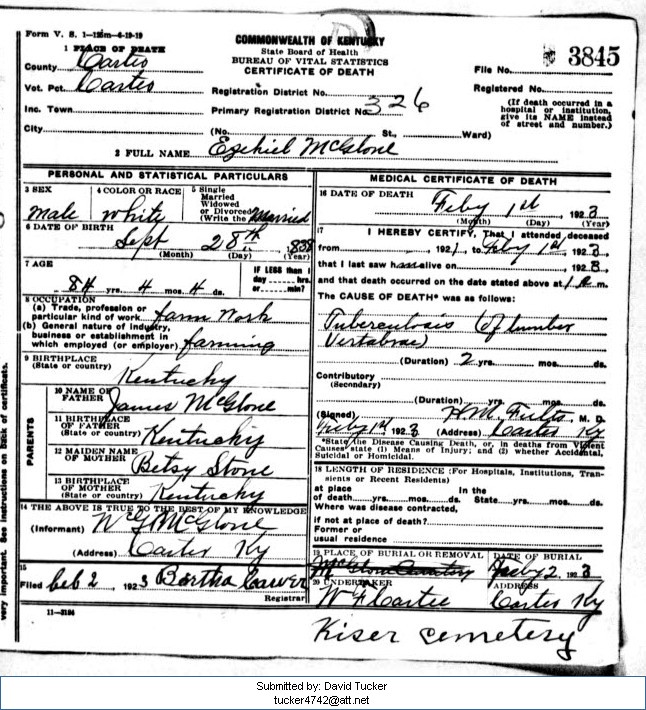 Form V. S. 1-125m-6-19-19
COMMONWEALTH OF KENTUCKY
State Board of Health
BUREAU OF VITAL STATISTICS
CERTIFICATE OF DEATH
3845
1 PLACE OF DEATH
County Carter
Vot. Pct. Carter
Inc. Town
City
Registration District No.
Primary Registration District No. 326
(No. St., Ward)
File No.
Registered No.
(If death occurred in a
hospital or institution,
give its NAME instead
of street and number.)
2 FULL NAME Ezekiel McGlone
PERSONAL AND STATISTICAL PARTICULARS
3 SEX
male
4 COLOR OR RACE
white
5 Single
Married
Widowed
or Divorced
(Write the Married
6 DATE OF BIRTH
Sept 28th 838
(Month) (Day) (Year)
7 AGE
84 yrs. 4 mos. 4 ds.
IF LESS than 1
day hrs.
or min?
8 OCCUPATION
(a) Trade, profession or
particular kind of work farm work
(b) General nature of industry,
business or establishment in
which employed (or employer) farming
9 BIRTHPLACE
(State or country)
Kentucky
PARENTS
10 NAME OF
FATHER James McGlone
11 BIRTHPLACE
OF FATHER
(State or country) Kentucky
12 MAIDEN NAME
OF MOTHER Betsy Stone
13 BIRTHPLACE
OF MOTHER
(State or country) Kentucky
14 THE ABOVE IS TRUE TO THE BEST OF MY KNOWLEDGE
(Informant) W G McGlone
(Address) Carter Ky
15
Filed Feb 2 1923 Bertha Carver
Registrar
11-3184
MEDICAL CERTIFICATE OF DEATH
16 DATE OF DEATH
Feby 1st 1923
(Month) (Day) (Year)
17 I HEREBY CERTIFY, That I attended deceased
from , 192 1 to Feby 1st 1923,
that I last saw h alive on , 1923,
and that death occurred on the date stated above at m.
The CAUSE OF DEATH* was as follows:
Tuberculosis (of lumber
Vertabrae)
(Duration) 2 yrs. mos. ds.
Contributory
(Secondary)
(Duration) yrs. mos. ds.
(Signed) H. M. M. D.
Feby 1st 1923 (Address) Carter Ky
*State the Disease Causing Death, or, in deaths from Violent
Causes state (1) Means of Injury; and (2) whether Accidental,
Suicidal or Homicidal.
18 LENGTH OF RESIDENCE (For Hospitals, Institutions, Tran-
sients or Recent Residents)
at place In the
of death yrs. mos. ds. State yrs. mos. ds.
Where was disease contracted,
if not at place of death?
Former or
usual residence
19 PLACE OF BURIAL OR REMOVAL
McGlone Cemetery
DATE OF BURIAL
Feby 2, 1923
20 UNDERTAKER
W F Cartee
ADDRESS
Carter Ky
Kiser cemetery
very important. See instructions on back of certificate.
Submitted by: David Tucker
tucker4742@att.net